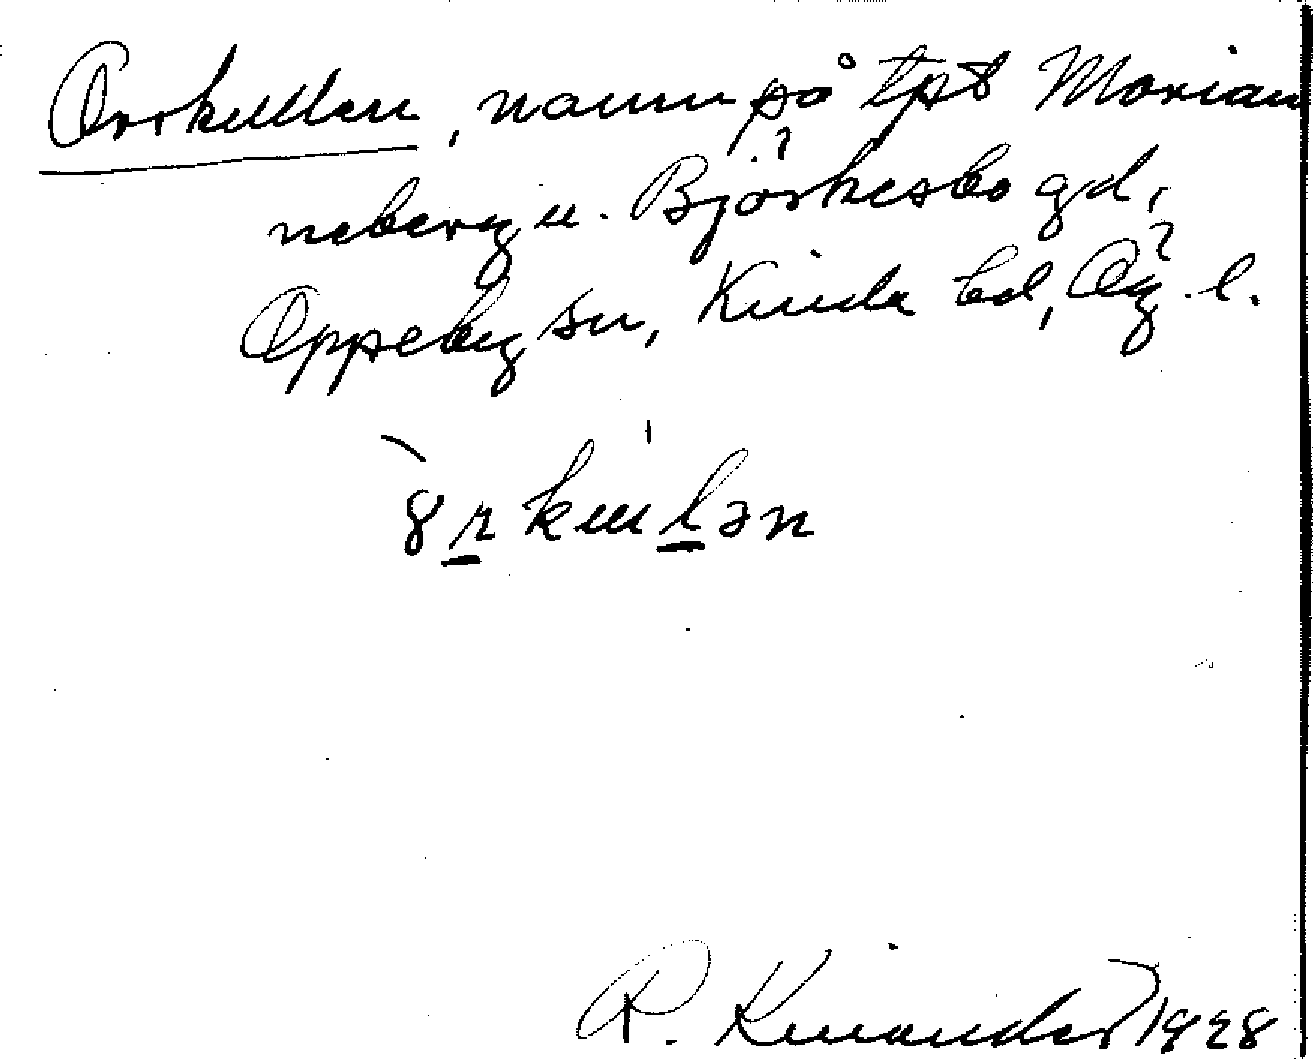 Orrkullen, namn på tpt Marian
neberg u. Björkesbo gd,
Oppeby sn, Kinda hd, Ög. l.
R. Kinander 1928